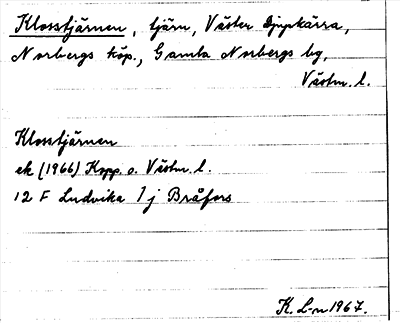 Klosstjärnen, tjärn, Väster Djupkärra,
Norbergs köp., Gamla Norbergs bg,
Västm. l.
Klosstjärnen
ek (1966) Kopp. o. Västm. l.
12 F Ludvika 1 j Bråfors
K. L-n 1967.